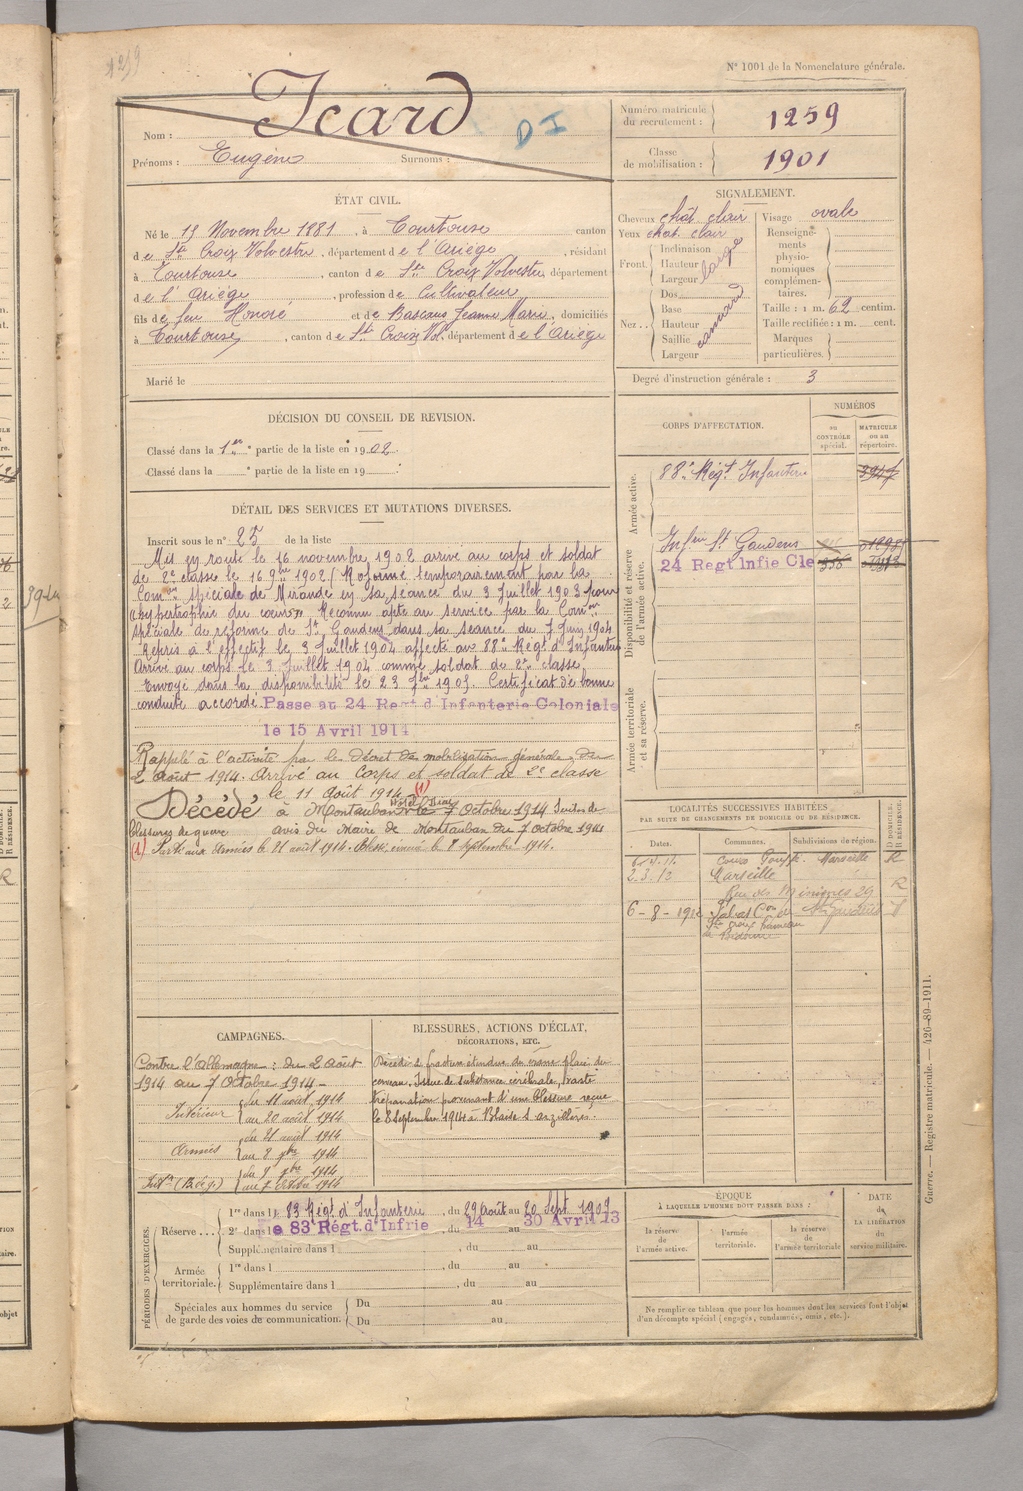 1259
N° 1001 de la Nomenclature générale.
Nom : Icard
D I
Prénoms : Eugène Surnoms :
Numéro matricule du recrutement : 1259
Classe de mobilisation : 1901
ÉTAT CIVIL.
Né le 19 Novembre 1881, à Tourtouse canton
de Ste Croix Volvestre, département de l'Ariège, résidant
à Tourtouse, canton de Ste Croix Volvestre, département
de l'Ariège, profession de Cultivateur
fils de feu Honoré et de Bascans Jeanne Marie, domiciliés
à Tourtouse, canton de Ste Croix Vol., département de l'Ariège
Marié le
SIGNALEMENT.
Cheveux chât. clair
Yeux chat. clair
Front. Inclinaison
Hauteur
Largeur
large
Nez .. Dos
Base
Hauteur
Saillie
Largeur
Visage ovale
Renseignements physionomiques complémentaires.
Taille : 1 m. 62 centim.
Taille rectifiée : 1 m. cent.
Marques particulières.
Degré d'instruction générale : 3
DÉCISION DU CONSEIL DE REVISION.
Classé dans la 1ere partie de la liste en 1902.
Classé dans la e partie de la liste en 19 :
DÉTAIL DES SERVICES ET MUTATIONS DIVERSES.
Inscrit sous le n° 25 de la liste
Mis en route le 16 novembre 1902 arrivé au corps et soldat
de 2e classe le 16 9bre 1902 Réformé temporairement par la
Comon spéciale de Mirande en sa séance du 3 Juillet 1903 pour
hypertrophie du coeur Reconnu apte au service par la Comon
spéciale de réforme de St Gaudens dans sa séance du 7 Juin 1904
Repris à l'effectif le 3 Juillet 1904 affecté au 88e Régt d'Infanterie
Arrivé au corps le 3 Juillet 1904 comme soldat de 2e classe
Envoyé dans la disponibilité le 23 7bre 1905. Certificat de bonne
conduite accordé. Passe au 24 Regt d'Infanterie Coloniale
le 15 Avril 1914
Rappelé à l'activité par le décret de mobilisation générale du
2 Août 1914. Arrivé au Corps et soldat de 2e classe
le 11 Août 1914 (1)
Décédé à Montauban le 7 Octobre 1914 Suites de
blessures de guerre avis du Maire de Montauban du 7 octobre 1914
(1) Parti aux Armées le 21 août 1914. Blessé, évacué le 8 septembre 1914.
CORPS D'AFFECTATION.
NUMÉROS
au CONTRÔLE spécial.
MATRICULE ou au répertoire.
Armée active.
88e Régt Infanterie
Disponibilité et réserve de l'armée active.
Infrie St Gaudens
24 Regt Infie Cle
Armée territoriale et sa réserve.
LOCALITÉS SUCCESSIVES HABITÉES
PAR SUITE DE CHANGEMENTS DE DOMICILE OU DE RÉSIDENCE.
Dates. Communes. Subdivisions de région.
D DOMICILE.
R RÉSIDENCE.
Marseille R
2.3.12 Marseille
Rue des Minimes 29 R
6-8-1912
St Gaudens
CAMPAGNES.
Contre l'Allemagne : du 2 Août
1914 au 7 Octobre 1914 -
Intérieur du 11 août 1914
au 20 août 1914
Armées du 21 août 1914
au 8 7bre 1914
du 9 7bre 1914
au 7 octobre 1914
BLESSURES, ACTIONS D'ÉCLAT,
DÉCORATIONS, ETC.
Décédé : fracture étendue du crane plaie du
cerveau. Issue de substance cérébrale, vaste
trépanation provenant d'une blessure reçue
le 8 septembre 1914 à Blaise S. Arzillières.
PÉRIODES D'EXERCICES.
Réserve ... 1re dans le 83 Régt d'Infanterie, du 29 août au 20 Sept 1907
2e dans le 83e Régt. d'Infrie du 14 au 30 Avril 13
Supplémentaire dans l , du au
Armée territoriale. 1re dans l , du au
Supplémentaire dans l , du au
Spéciales aux hommes du service de garde des voies de communication. Du au
Du au
ÉPOQUE
À LAQUELLE L'HOMME DOIT PASSER DANS :
la réserve de l'armée active.
l'armée territoriale.
la réserve de l'armée territoriale
DATE de LA LIBÉRATION du service militaire.
Ne remplir ce tableau que pour les hommes dont les services font l'objet
d'un décompte spécial (engagés, condamnés, omis, etc.).
Guerre. — Registre matricule. — 426-89-1911.